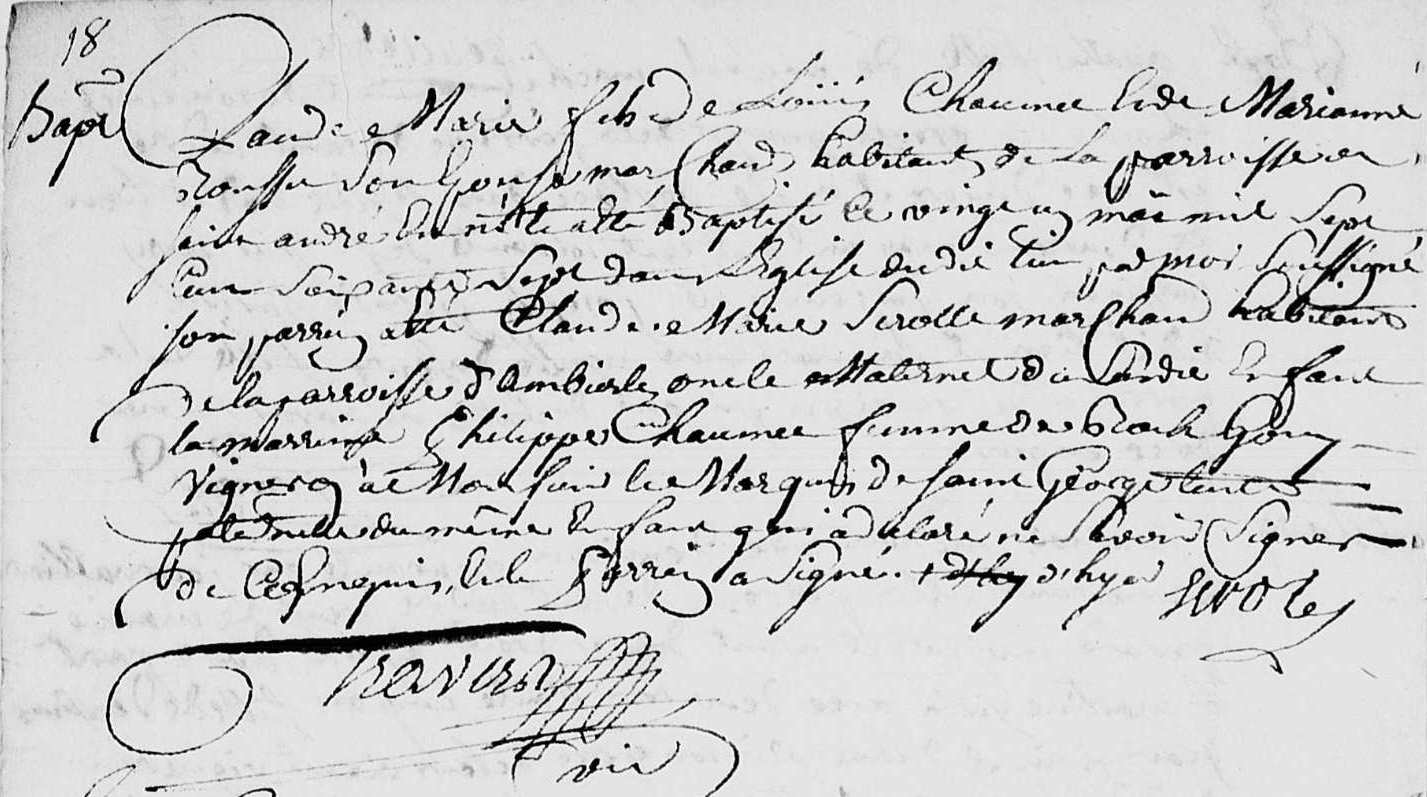 18
Bapt
Claude Marie fils de Loüis Chaumee et de Marianne
Rousse son Epouse marchand habitant de la parroisse de
saint andré et né à été Baptisé le vingt un mai mil Sept
Cent Soixante Sept dans l'Eglise dudit lieu par moi Soussigné
son parrin a été Claude Marie Serolle marchand habitant
de la parroisse d'ambierle oncle Maternel du Susdit Enfant
la marrinne Philippe Chaumee femme de Rock
Vigneron à Monsieur le Marquis de saint George tante
paternelle du même Enfant qui à déclaré ne Savoir Signer
de Ce Enquis, et le Parrein a Signé. d'hyer Serole
Traverse
vic